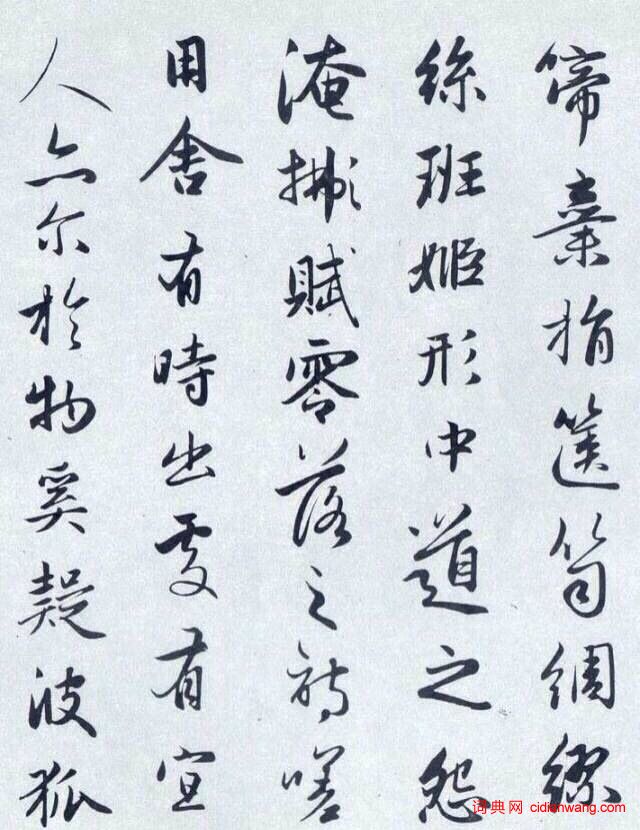 啼棄捐篋笥綢繆
班姬形中道之怨
淹賦零落之詩嗟
用舍有時出處有宜
人亦尔於物奚疑彼狐
词典网 cidianwang.com